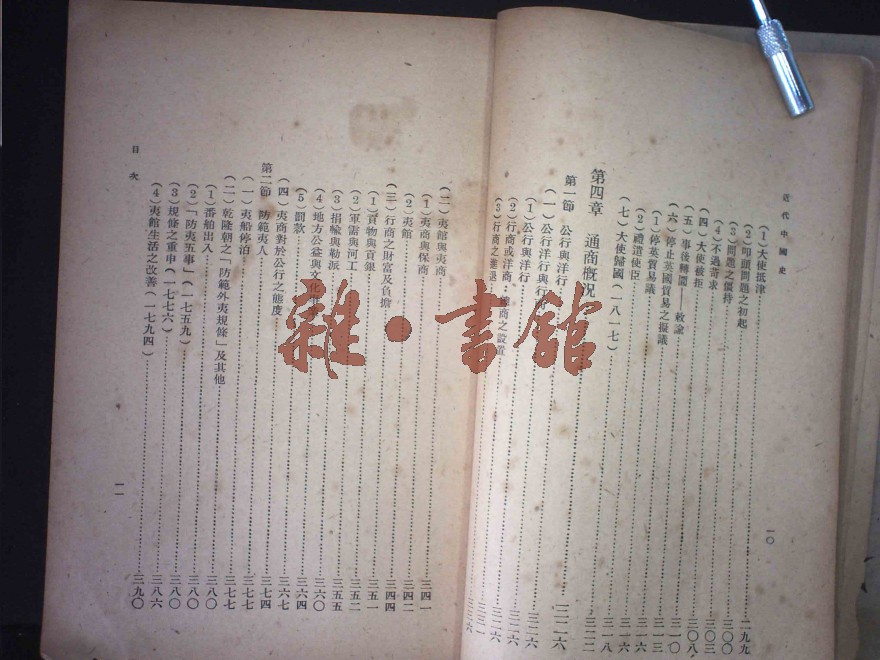 近代中國史
一〇
(1)大使抵津……二九九
(2)叩頭問題之初起……三〇〇
(3)問題之僵持……三〇三
(4)不過苛求……三〇八
(四)大使被拒……三一〇
(五)事後轉圜——敕諭……三一三
(六)停止英國貿易之擬議……三一六
(1)停英貿易議……三一六
(2)禮遣使臣……三一八
(七)大使歸國(一八一七)……三二二
第四章 通商概況……三二六
第一節 公行與洋行……三二六
(一)公行洋行與行商……三二六
(1)公行與洋行……三二六
(2)行商或洋商:總商之設置……三三一
(3)行商之進退……三六
(二)夷館與夷商……三四一
(1)夷商與保商……三四二
(2)夷館……三四四
(三)行商之財富及負擔……三五一
(1)貢物與貢銀……三五二
(2)軍需與河工……三五五
(3)捐輸與勒派……三六〇
(4)地方公益與文化……三六四
(5)罰款……三六七
(四)夷商對於公行之態度……三七四
第二節 防範夷人……三七七
(一)夷船停泊……三七七
(二)乾隆朝之「防範外夷規條」及其他……三八〇
(1)番舶出入……三八〇
(2)「防夷五事」(一七五九)……三八〇
(3)規條之重申(一七七六)……三八六
(4)夷館生活之改善(一七九四)……三九〇
目次
一一
雜·書館